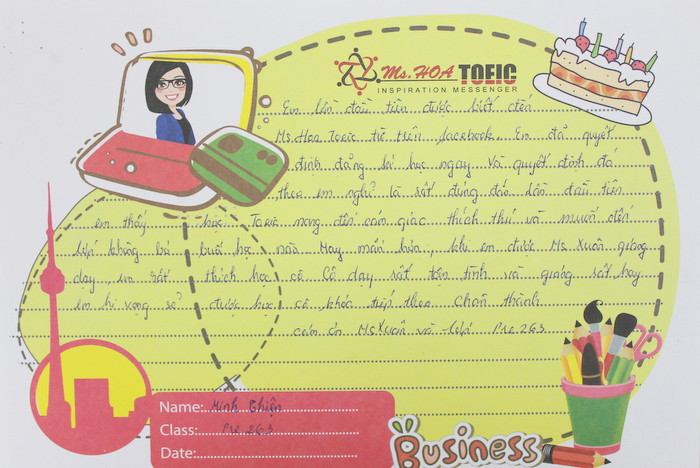 Ms. HOA TOEIC
INSPIRATION MESSENGER
Em lần đầu tiên được biết đến
Ms Hoa Toeic từ trên facebook. Em đã quyết
định đăng kí học ngay và quyết định đó
theo em nghĩ là rất đúng đắn. Lần đầu tiên
em thấy học Toeic mang đến cảm giác thích thú và muốn đến
lớp không bỏ buổi học nào. May mắn hơn, khi em được Ms Xuân giảng
dạy, em rất thích học cô. Cô dạy rất tận tình và giảng rất hay
em hi vọng sẽ được học cô khóa tiếp theo. Chân thành
cảm ơn Ms Xuân và lớp Pre 263
Name: Minh Thiện
Class: Pre 263
Date:
Business